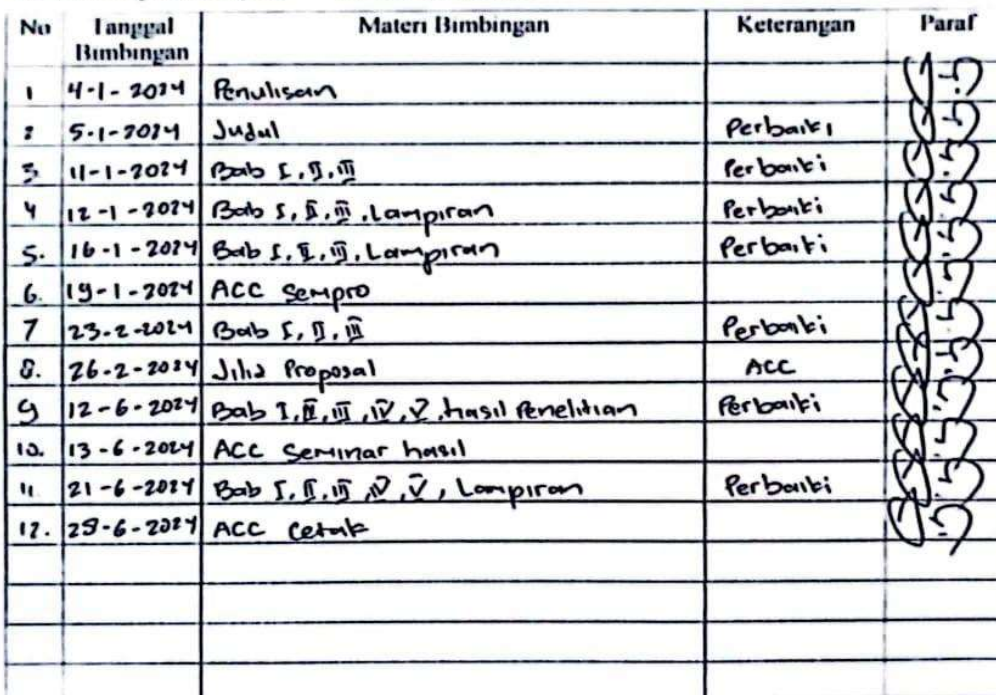 No Tanggal Bimbingan Materi Bimbingan Keterangan Paraf
1 4-1-2024 Penulisan
2 5-1-2024 Judul Perbaiki
3. 11-1-2024 Bab I, II, III Perbaiki
4 12-1-2024 Bab I, II, III, Lampiran Perbaiki
5. 16-1-2024 Bab I, II, III, Lampiran Perbaiki
6. 19-1-2024 ACC Sempro
7 23-2-2024 Bab I, II, III Perbaiki
8. 26-2-2024 Jilid Proposal ACC
9 12-6-2024 Bab I, II, III, IV, V, hasil Penelitian Perbaiki
10. 13-6-2024 ACC Seminar hasil
11 21-6-2024 Bab I, II, III, IV, V, Lampiran Perbaiki
12. ACC Cetak